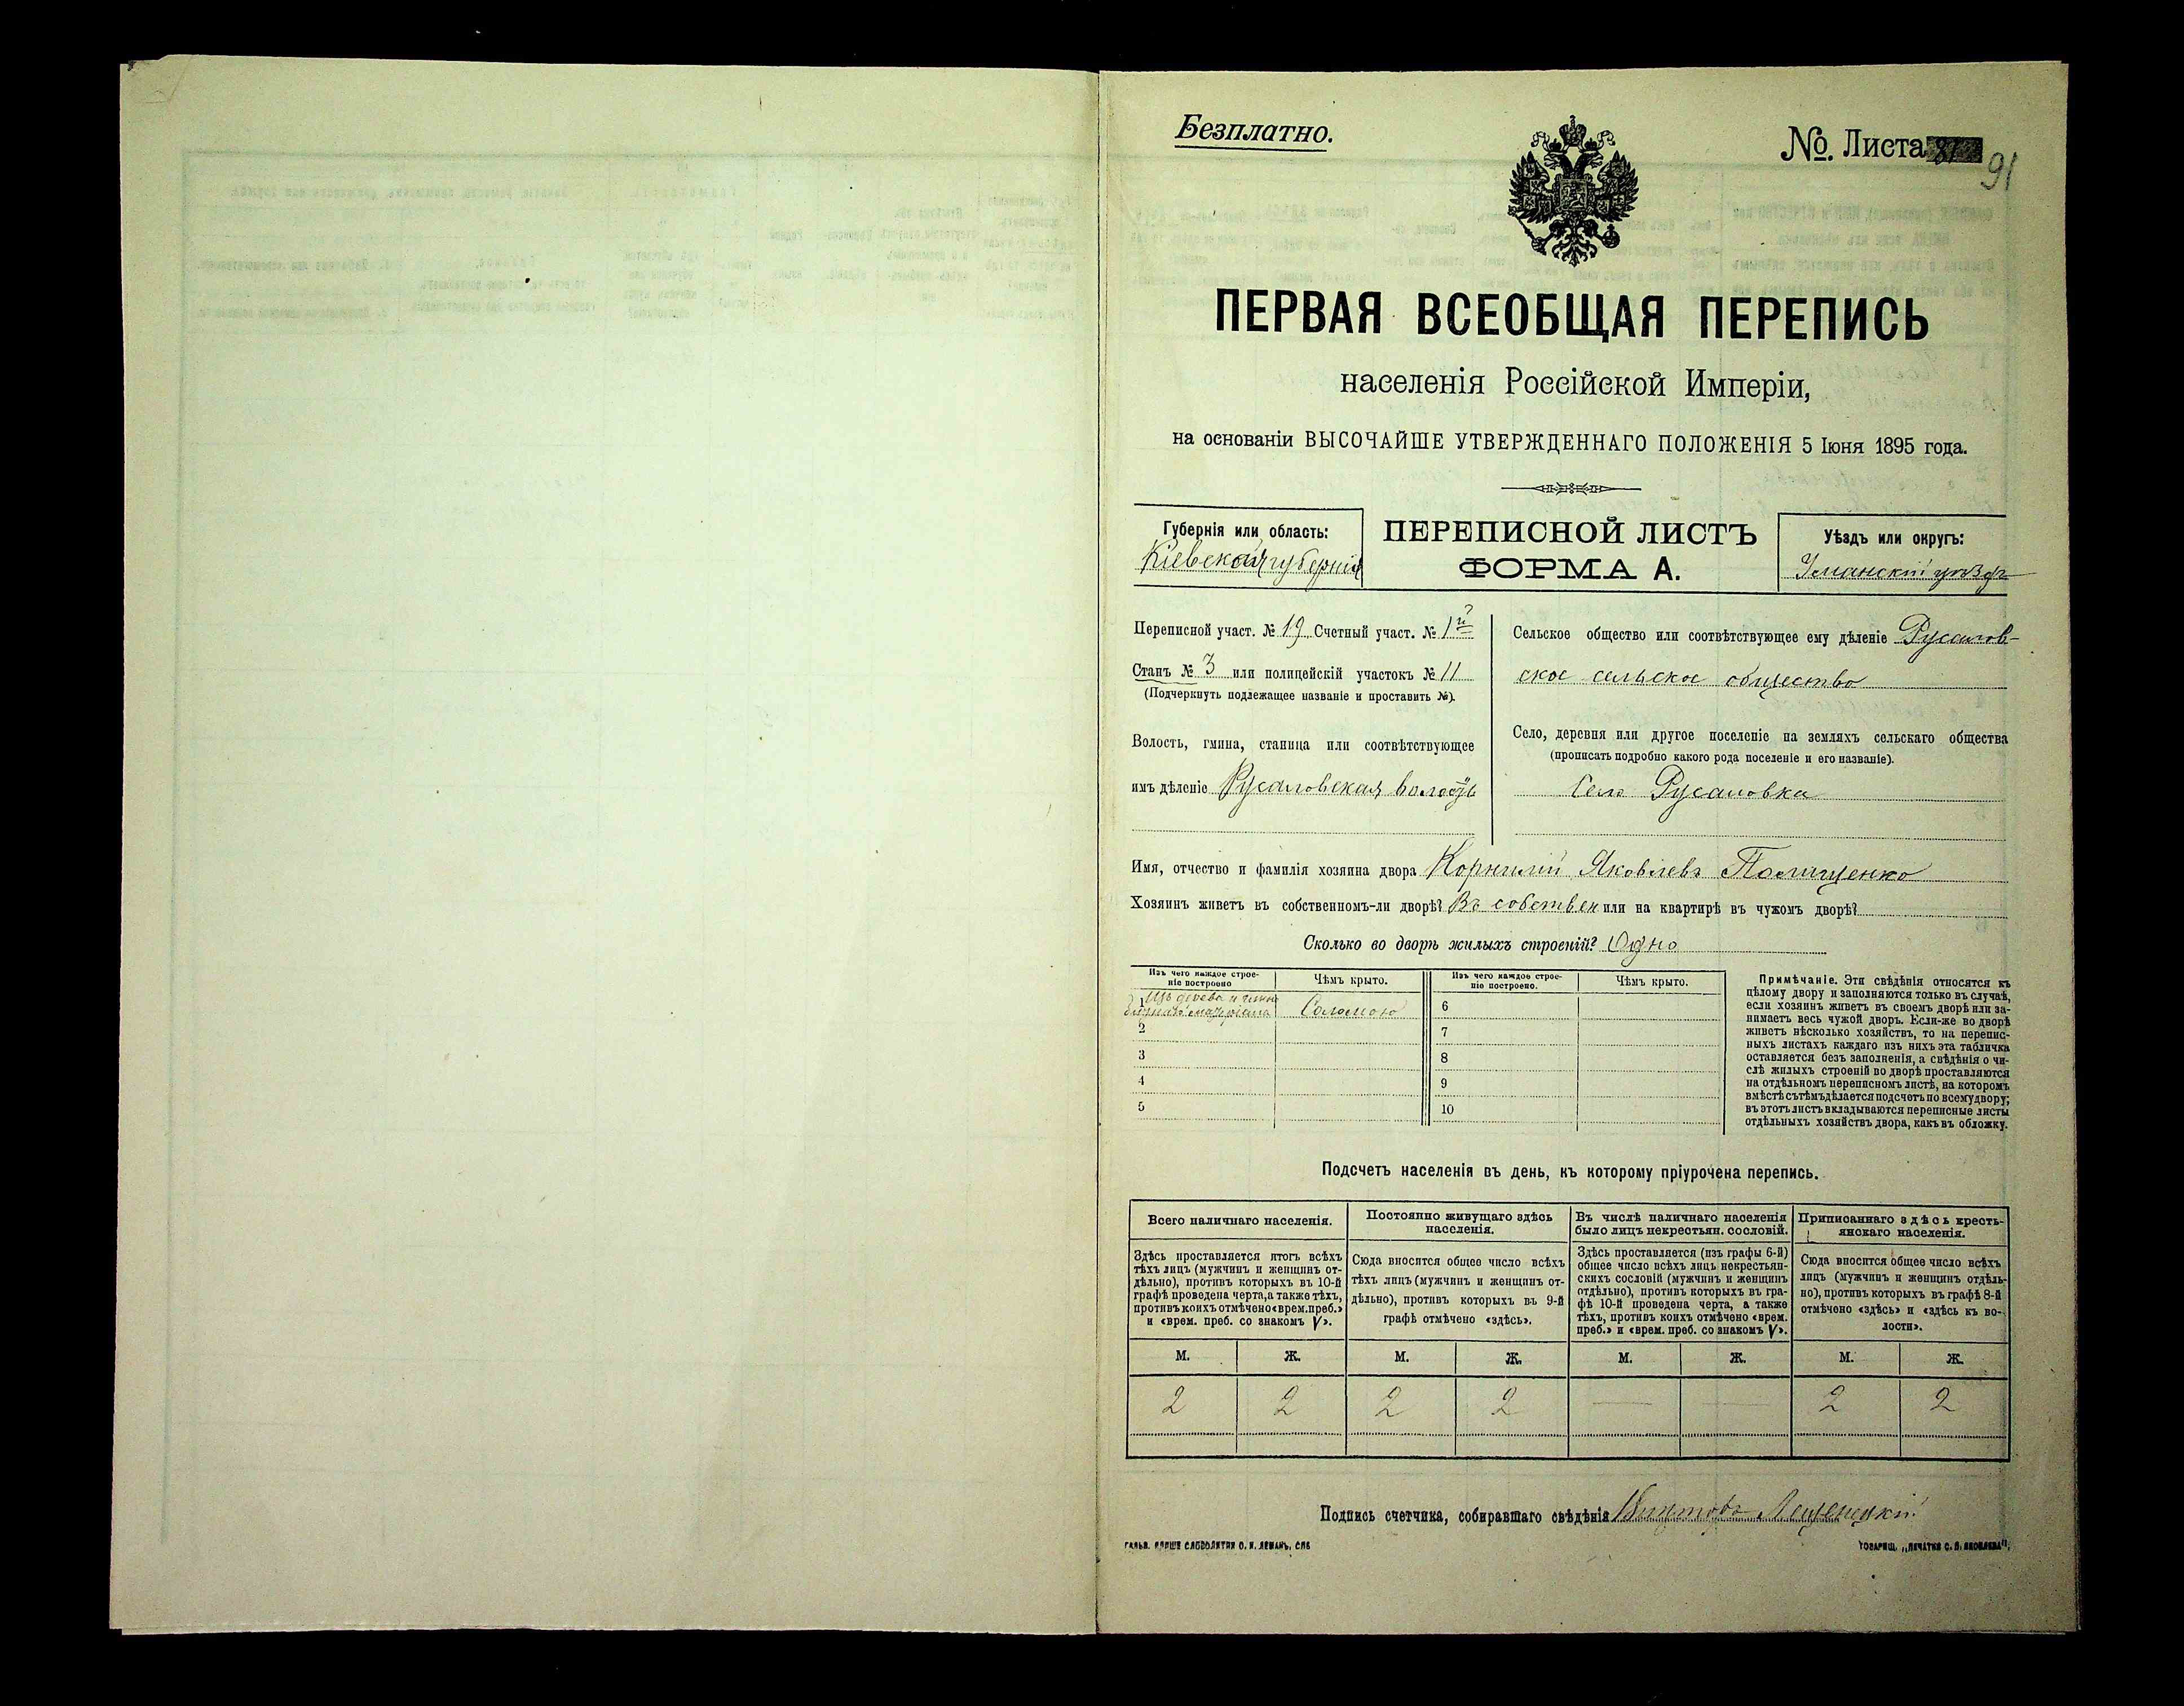 Безплатно.
№ Листа 91
ПЕРВАЯ ВСЕОБЩАЯ ПЕРЕПИСЬ
населенія Россійской Имперіи,
на основаніи ВЫСОЧАЙШЕ УТВЕРЖДЕННАГО ПОЛОЖЕНІЯ 5 Іюня 1895 года.
Губернія или область:
Кіевская губернія
ПЕРЕПИСНОЙ ЛИСТЪ
ФОРМА А.
Уѣздъ или округъ:
Уманскій уѣздъ
Переписной участ. № 19 Счетный участ. № 1й
Станъ № 3 или полицейскій участокъ № 11
(Подчеркнуть подлежащее названіе и проставить №).
Волость, гмина, станица или соотвѣтствующее
имъ дѣленіе Русаловская волость
Сельское общество или соотвѣтствующее ему дѣленіе Русалов-
ское сельское общество
Село, деревня или другое поселеніе на земляхъ сельскаго общества
(прописать подробно какого рода поселеніе и его названіе).
Село Русаловка
Имя, отчество и фамилія хозяина двора Корнилій Яковлевъ Полищенко
Хозяинъ живетъ въ собственномъ-ли дворѣ? Въ собствен или на квартирѣ въ чужомъ дворѣ?
Сколько во дворѣ жилыхъ строеній? Одно
Изъ чего каждое строе-
ніе построено
Чѣмъ крыто.
Изъ чего каждое строе-
ніе построено.
Чѣмъ крыто.
1 Изъ дерева и глины
Соломою
6
2
7
3
8
4
9
5
10
Примѣчаніе. Эти свѣдѣнія относятся къ
цѣлому двору и заполняются только въ случаѣ,
если хозяинъ живетъ въ своемъ дворѣ или за-
нимаетъ весь чужой дворъ. Если-же во дворѣ
живетъ нѣсколько хозяйствъ, то на перепис-
ныхъ листахъ каждаго изъ нихъ эта табличка
оставляется безъ заполненія, а свѣдѣнія о чи-
слѣ жилыхъ строеній во дворѣ проставляются
на отдѣльномъ переписномъ листѣ, на которомъ
вмѣстѣ съ тѣмъ дѣлается подсчетъ по всему двору;
въ этотъ листъ вкладываются переписные листы
отдѣльныхъ хозяйствъ двора, какъ въ обложку.
Подсчетъ населенія въ день, къ которому пріурочена перепись.
Всего наличнаго населенія.
Здѣсь проставляется итогъ всѣхъ
тѣхъ лицъ (мужчинъ и женщинъ от-
дѣльно), противъ которыхъ въ 10-й
графѣ проведена черта, а также тѣхъ,
противъ коихъ отмѣчено «врем. преб.»
и «врем. преб. со знакомъ V».
Постоянно живущаго здѣсь
населенія.
Сюда вносится общее число всѣхъ
тѣхъ лицъ (мужчинъ и женщинъ от-
дѣльно), противъ которыхъ въ 9-й
графѣ отмѣчено «здѣсь».
Въ числѣ наличнаго населенія
было лицъ некрестьян. сословій.
Здѣсь проставляется (изъ графы 6-й)
общее число всѣхъ лицъ некрестьян-
скихъ сословій (мужчинъ и женщинъ
отдѣльно), противъ которыхъ въ гра-
фѣ 10-й проведена черта, а также
тѣхъ, противъ коихъ отмѣчено «врем.
преб.» и «врем. преб. со знакомъ V».
Приписаннаго здѣсь кресть-
янскаго населенія.
Сюда вносится общее число всѣхъ
лицъ (мужчинъ и женщинъ отдѣль-
но), противъ которыхъ въ графѣ 8-й
отмѣчено «здѣсь» и «здѣсь къ во-
лости».
М. Ж. М. Ж. М. Ж. М. Ж.
2 2 2 2 — — 2 2
Подпись счетчика, собиравшаго свѣдѣнія
ТОВАРИЩ. „ПЕЧАТНЯ С. П. ЯКОВЛЕВА".